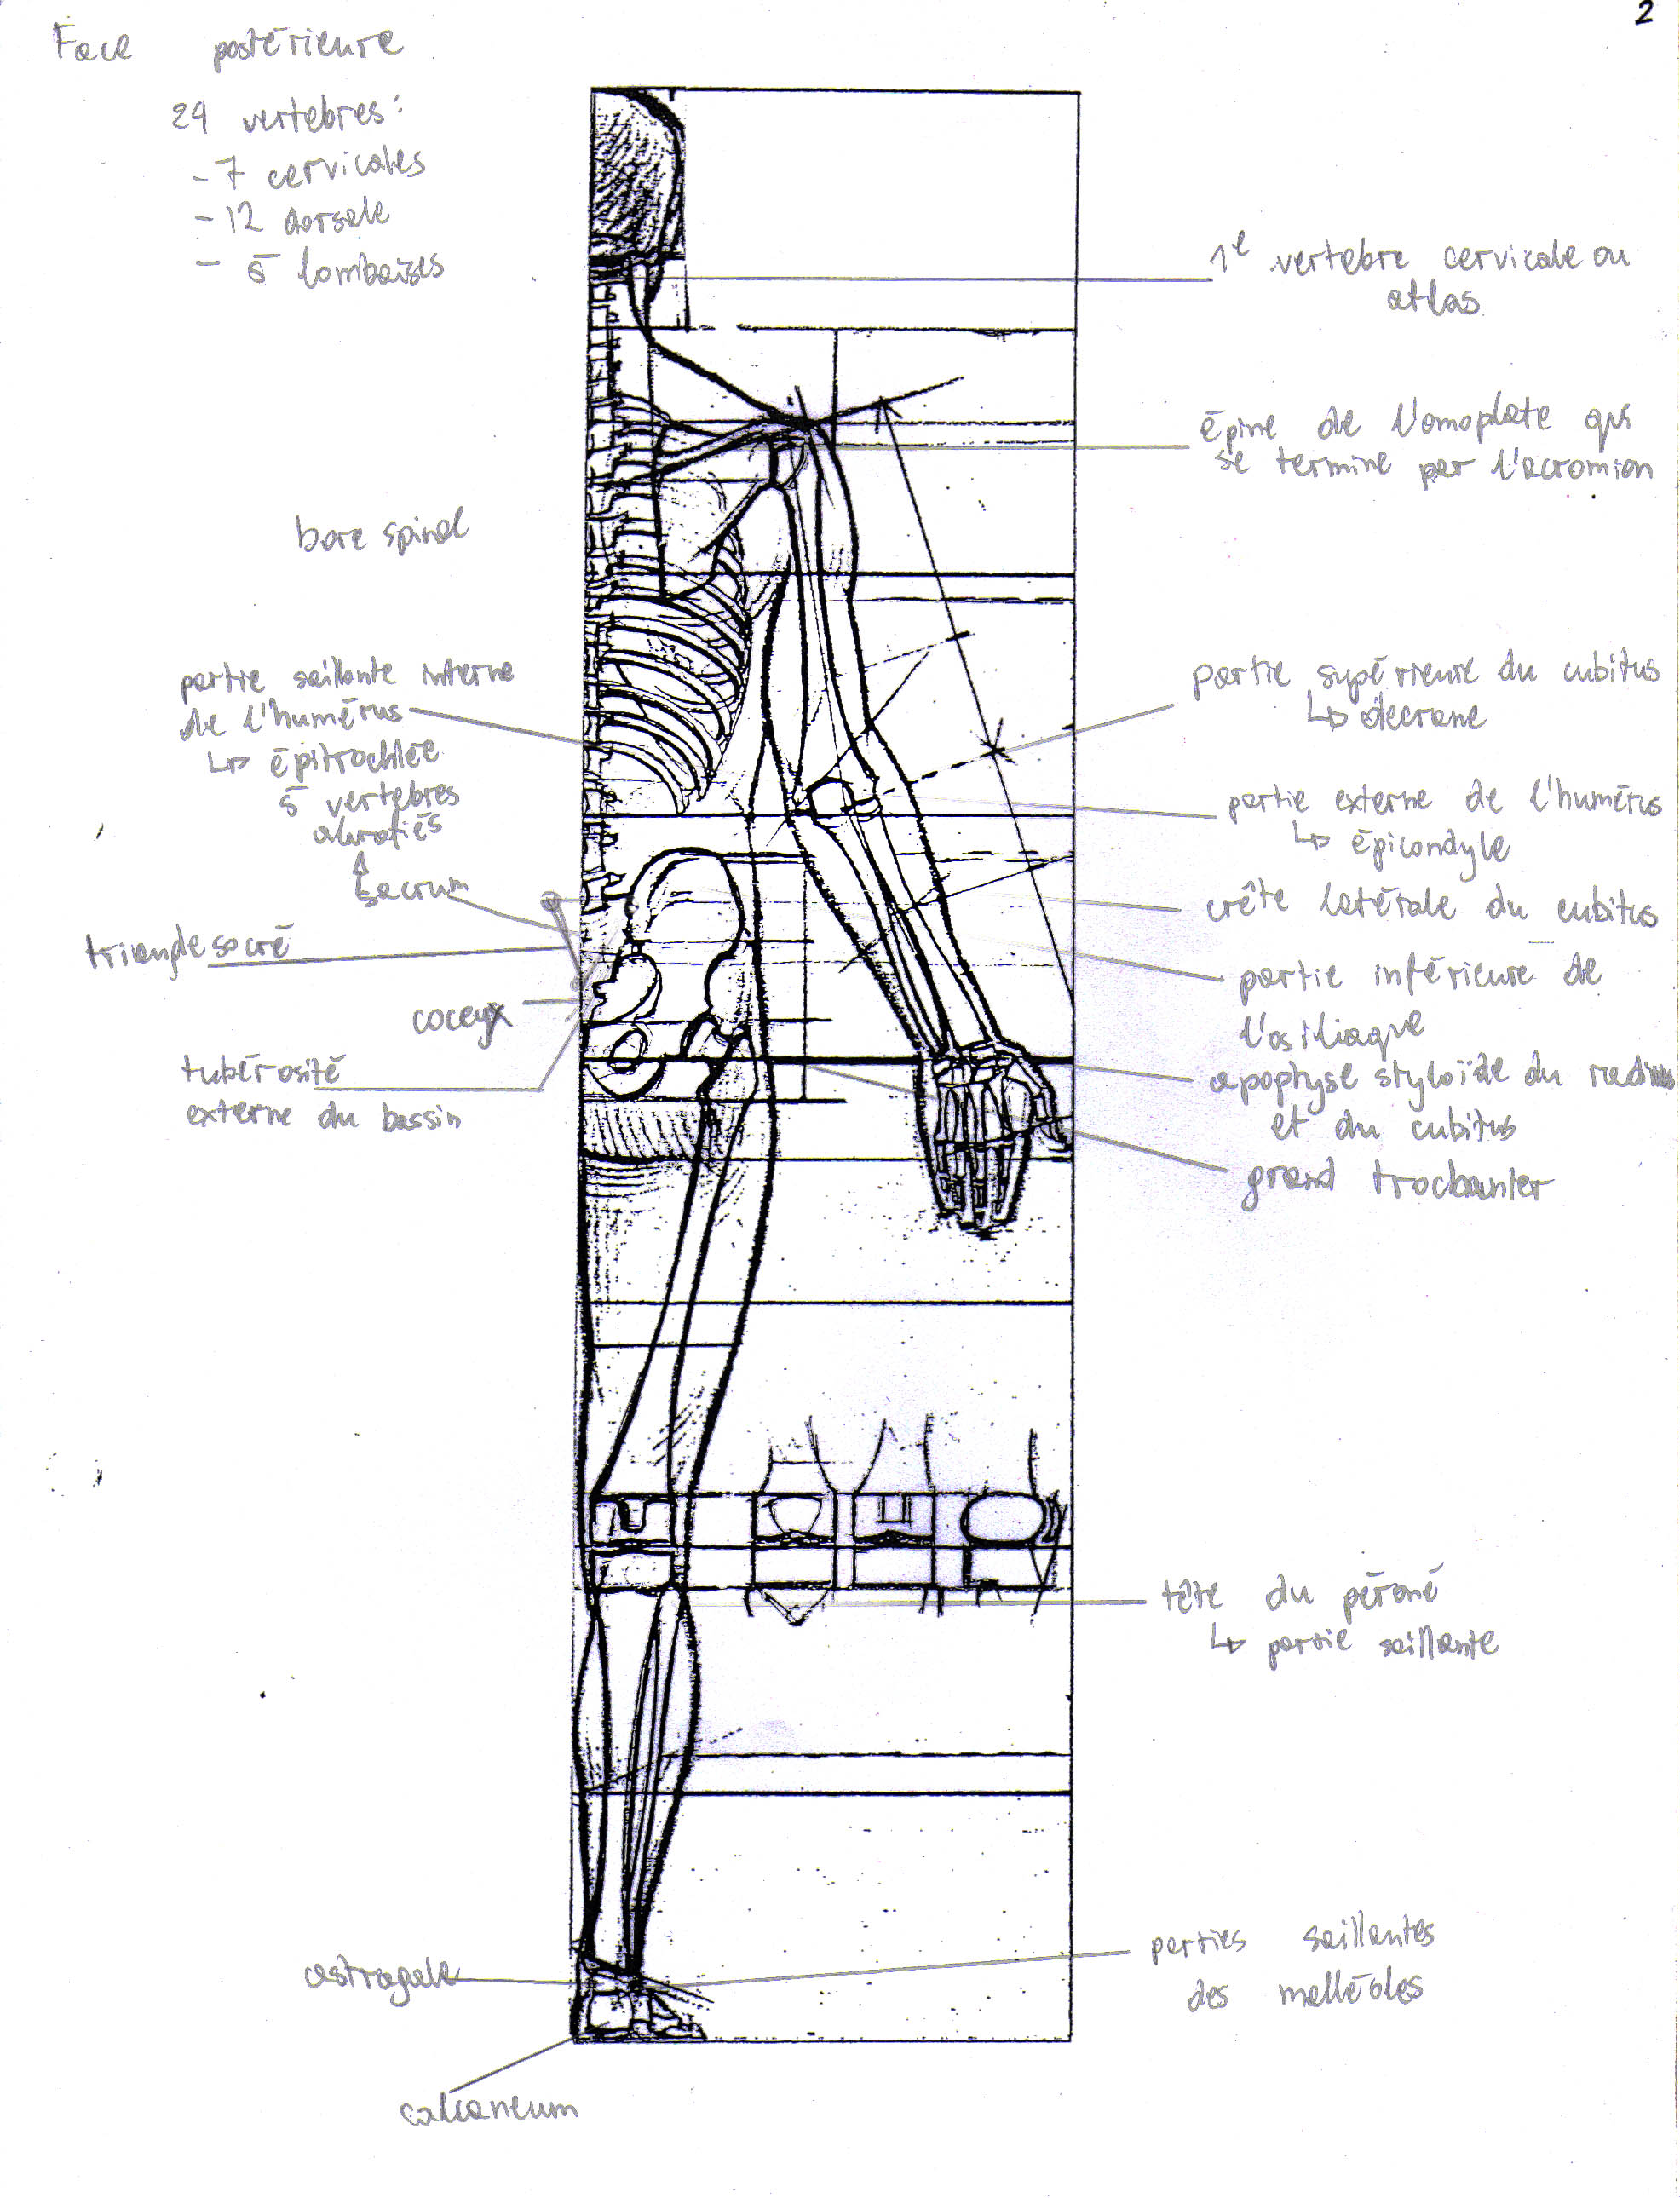 2
Face postérieure
24 vertebres:
- 7 cervicales
- 12 dorsale
- 5 lombaires
1e vertebre cervicale ou
atlas
épine de l'omoplate qui
se termine par l'acromion
bore spinal
partie saillante interne
de l'humérus
↳ épitrochlée
5 vertebres
sacrum
triangle sacré
coccyx
tubérosité
externe du bassin
partie supérieure du cubitus
↳ olecrane
partie externe de l'humérus
↳ épicondyle
crête latérale du cubitus
partie inférieure de
l'os iliaque
apophyse styloïde du radius
et du cubitus
grand trochanter
tête du péroné
↳ partie saillante
astragale
parties saillantes
des malléoles
calcaneum